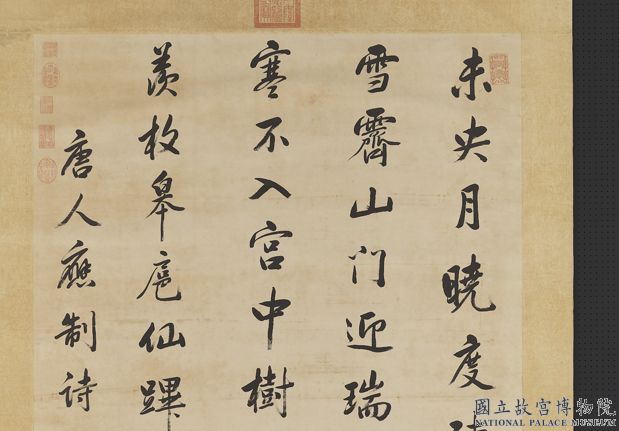 未央月曉度
雪霽山門迎瑞
寒不入宮中樹
羨枚皋扈仙蹕
唐人應制詩
國立故宮博物院
NATIONAL PALACE MUSEUM